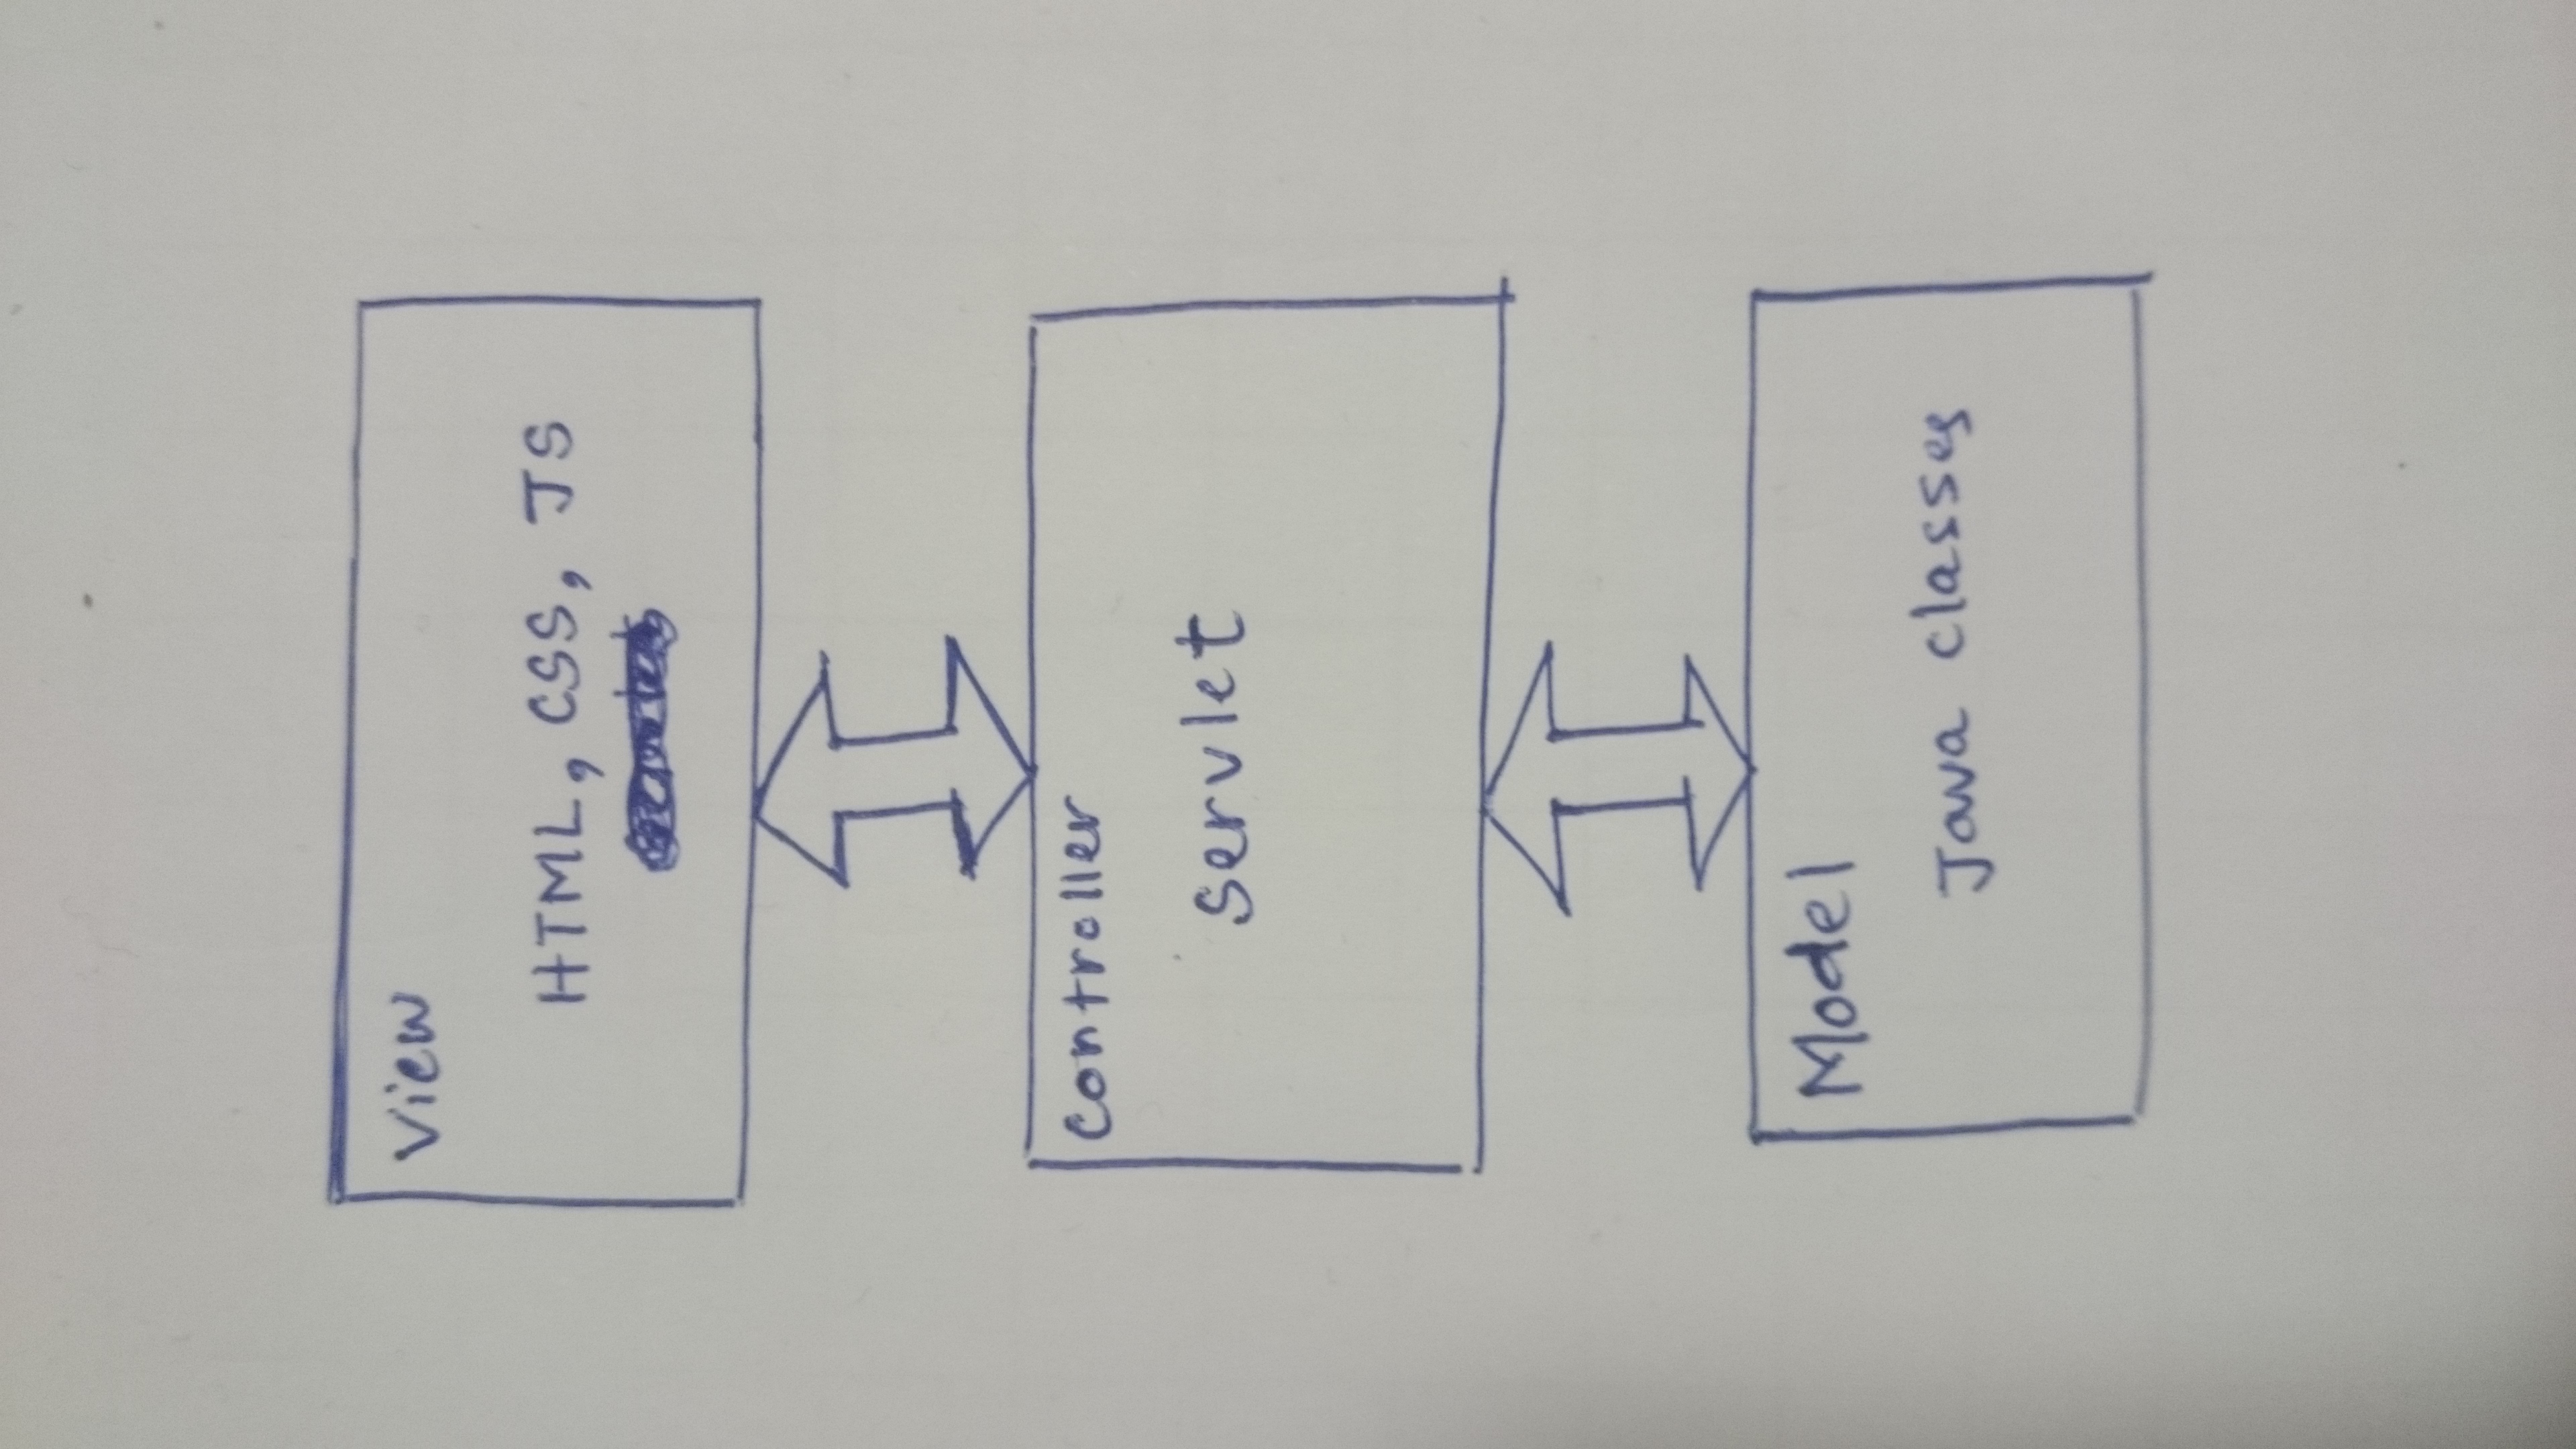 View
HTML, CSS, JS
Controller
Servlet
Model
Java classes